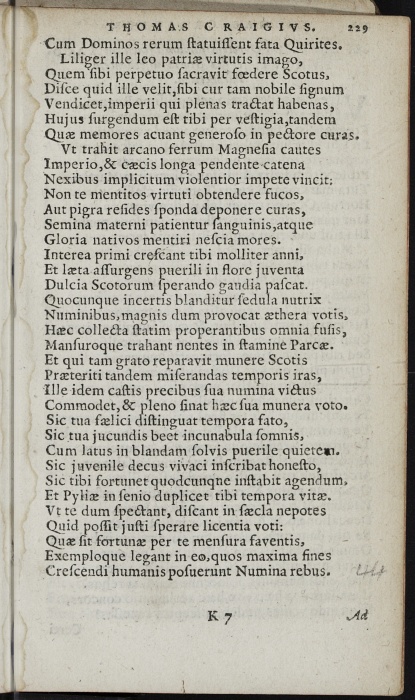 THOMAS CRAIGIVS. 229
Cum Dominos rerum ſtatuiſſent fata Quirites.
Liliger ille leo patriæ virtutis imago,
Quem ſibi perpetuo ſacravit fœdere Scotus,
Diſce quid ille velit, ſibi cur tam nobile ſignum
Vendicet, imperii qui plenas tractat habenas,
Hujus ſurgendum eſt tibi per veſtigia, tandem
Quæ memores acuant generoſo in pectore curas.
Vt trahit arcano ferrum Magneſia cautes
Imperio, & cæcis longa pendente catena
Nexibus implicitum violentior impete vincit:
Non te mentitos virtuti obtendere fucos,
Aut pigra reſides ſponda deponere curas,
Semina materni patientur ſanguinis, atque
Gloria nativos mentiri neſcia mores.
Interea primi creſcant tibi molliter anni,
Et læta aſſurgens puerili in flore juventa
Dulcia Scotorum ſperando gaudia paſcat.
Quocunque incertis blanditur ſedula nutrix
Numinibus, magnis dum provocat æthera votis,
Hæc collecta ſtatim properantibus omnia fuſis,
Manſuroque trahant nentes in ſtamine Parcæ.
Et qui tam grato reparavit munere Scotis
Præteriti tandem miſerandas temporis iras,
Ille idem caſtis precibus ſua numina victus
Commodet, & pleno ſinat hæc ſua munera voto.
Sic tua fælici diſtinguat tempora fato,
Sic tua jucundis beet incunabula ſomnis,
Cum latus in blandam ſolvis puerile quietem.
Sic juvenile decus vivaci inſcribat honeſto,
Sic tibi fortunet quodcunqne inſtabit agendum,
Et Pyliæ in ſenio duplicet tibi tempora vitæ.
Vt te dum ſpectant, diſcant in ſæcla nepotes
Quid poſſit juſti ſperare licentia voti:
Quæ ſit fortunæ per te menſura faventis,
Exemploque legant in eo, quos maxima fines
Creſcendi humanis poſuerunt Numina rebus.
K 7 Ad